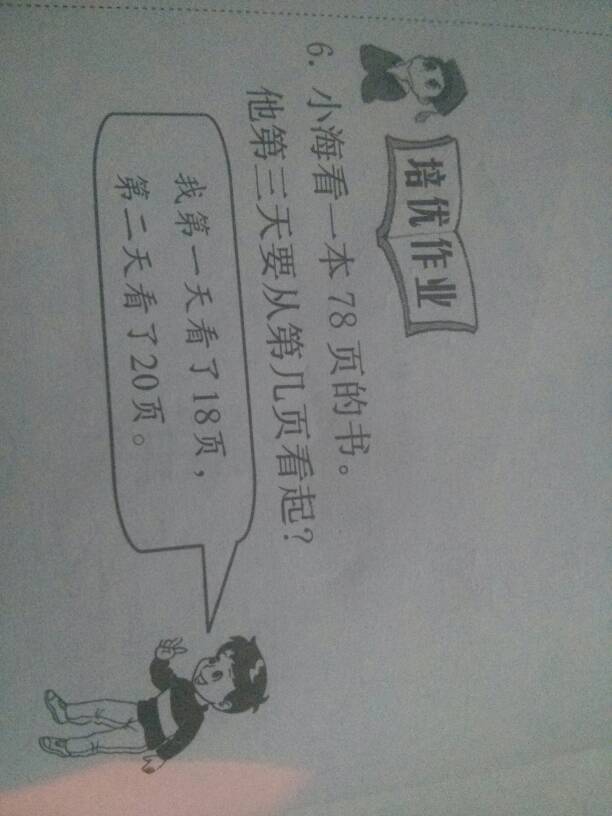 培优作业
6. 小海看一本78页的书。
他第三天要从第几页看起?
我第一天看了18页,
第二天看了20页。